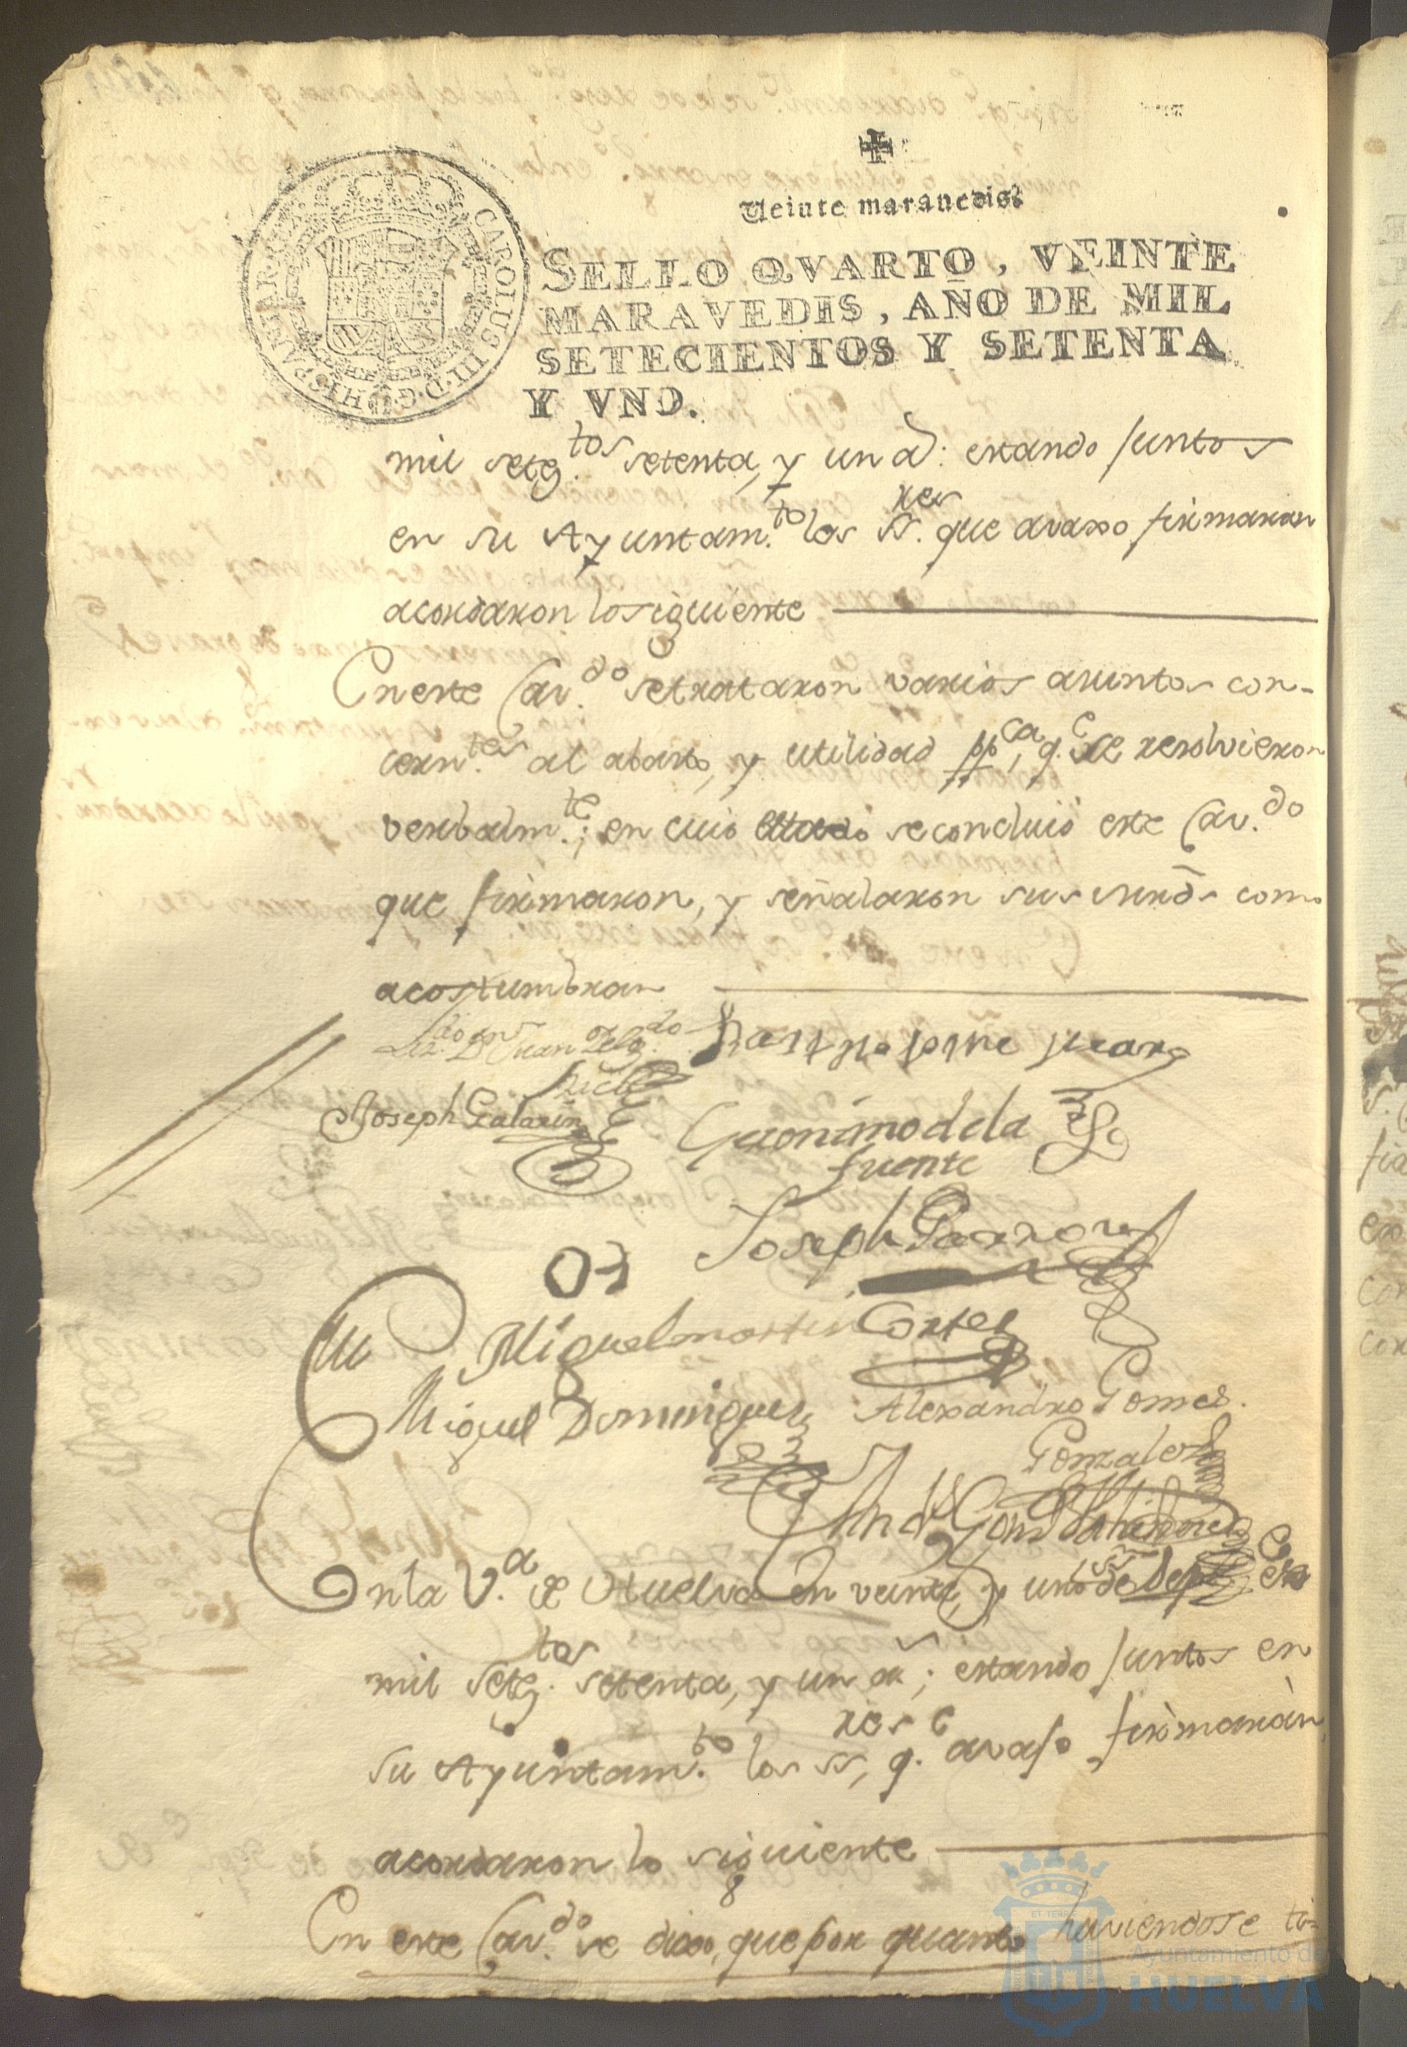 Veinte maravedis.
SELLO QVARTO, VEINTE
MARAVEDIS, AÑO DE MIL
SETECIENTOS Y SETENTA
Y VNO.
CAROLUS III D.G. HISPANIAR. REX
mil seteg.tos setenta, y un a.: estando juntos
en su Ayuntam.to los ss.res que avaxo firmaran
acordaron lo siguiente
En este Cav.do se trataron varios asuntos con-
cern.tes al abasto, y utilidad pp.ca, q.e se resolvieron
verbalm.te; en cuio estado se concluió este Cav.do
que firmaron, y señalaron sus mrds como
acostumbran
Lizdo Dn Juan Delg.do
Bartholome
Joseph Galarin
Geronimo de la
fuente
Joseph Garzon
Miguel martin Cortes
Miguel Dominguez
Alexandro Gomes.
Gonzales
En la V.a de Huelva en veinte, y uno de Sept.e de
mil seteg.tos setenta, y un a; estando juntos en
su Ayuntam.to los ss.res q.e avaxo firmarán
acordaron lo siguiente
En este Cav.do se dixo, que por quanto haviendose te-
Ayuntamiento de
HUELVA